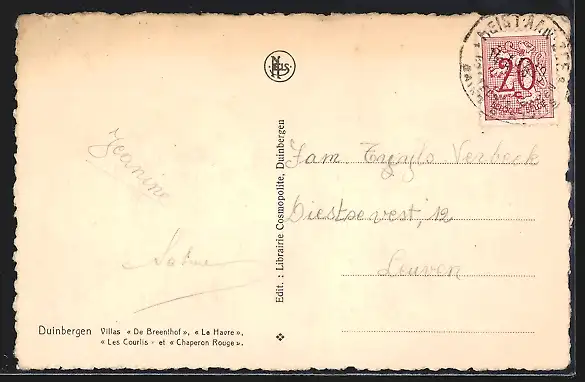 NELS
HEIST-AAN-ZEE
20
BELGIQUE-BELGIE
Jeanine
Edit. : Librairie Cosmopolite, Duinbergen
Fam. Verbeek
Diestsevest, 12
Leuven
Duinbergen Villas « De Breenthof », « Le Havre »,
« Les Courlis » et « Chaperon Rouge ».